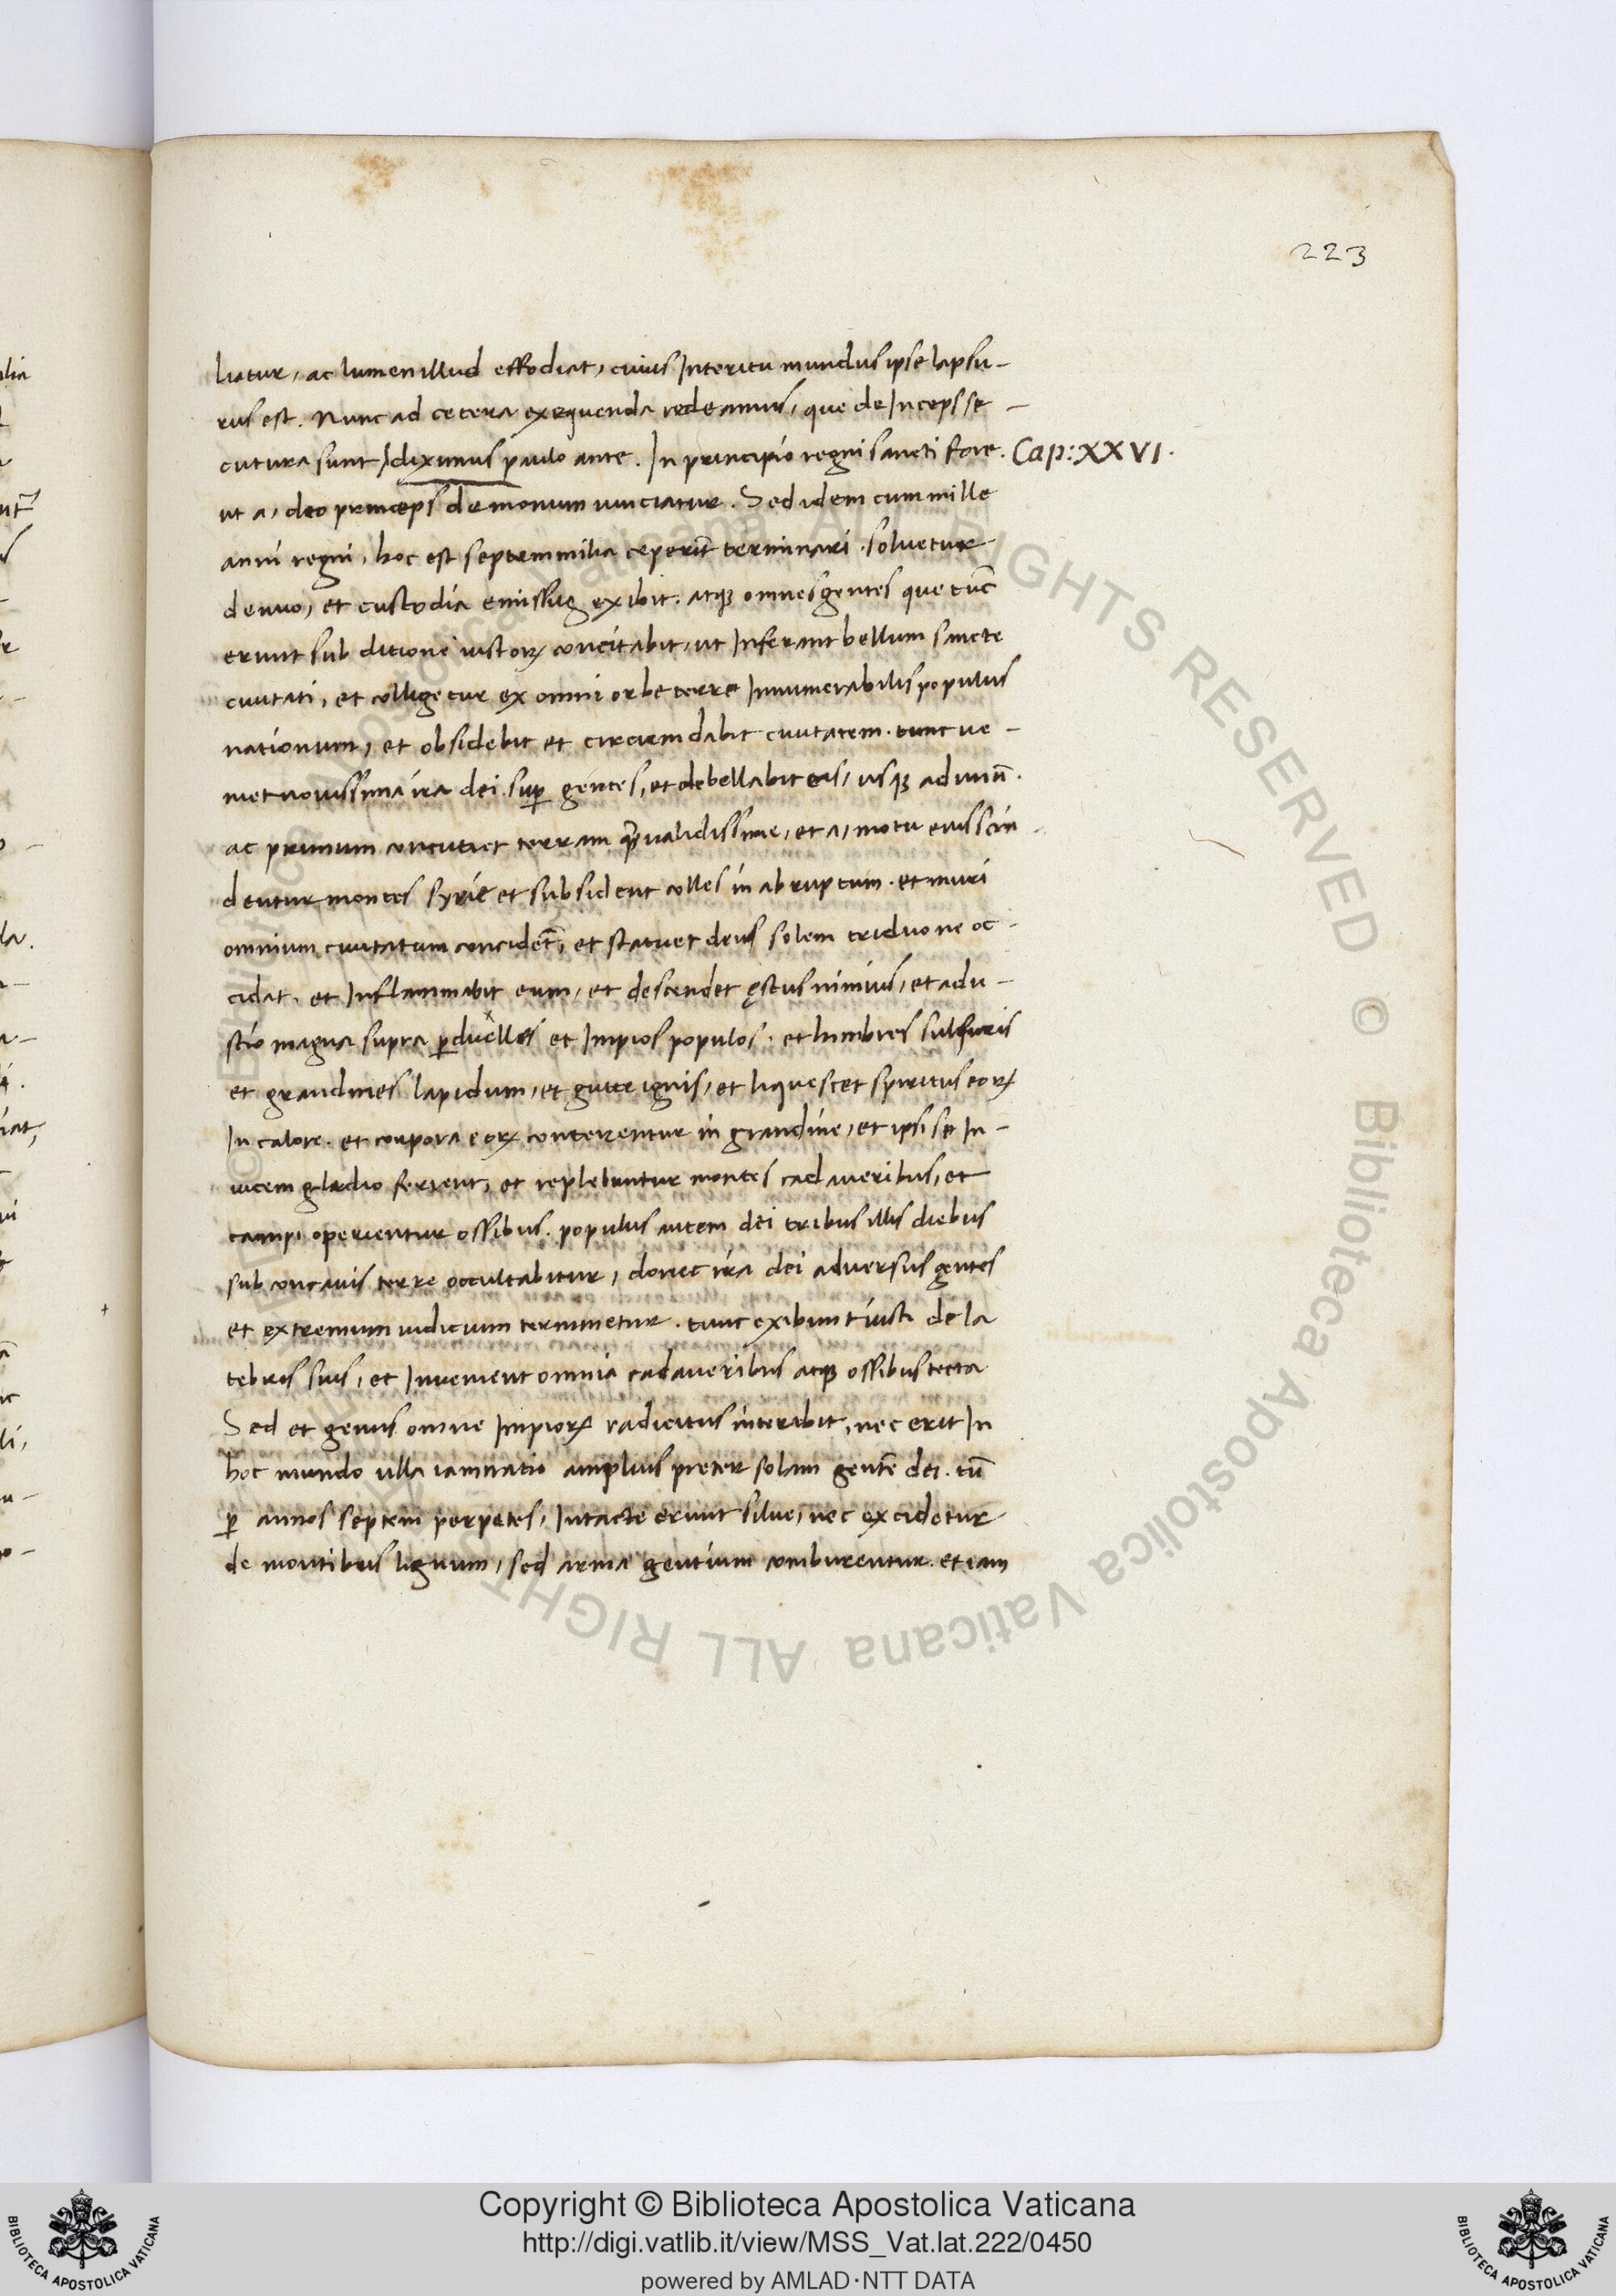 223
liatur, ac lumen illud effodiat, cuius Interitu mundus ipse lapsu-
rus est. Nunc ad cetera exequenda redeamus, que de Inceps se-
cutura sunt, diximus paulo ante. In principio regni sancti fore. Cap: XXVI.
ut a, deo princeps demonum uinciatur. Sed idem cum mille
anni regni, hoc est septem milia ceperīt terminari. soluetur
denuo, et custodia emissus exibit. atqȝ omnes gentes que tūc
erunt sub ditione iustoꝝ concitabit, ut Inferant bellum sancte
ciuitati, et colligetur ex omni orbe terre Innumerabilis populus
nationum, et obsidebit et circumdabit ciuitatem. tunc ue-
niet nouissima ira dei. suꝑ gentes, et debellabit eas, usqȝ ad unū.
ac primum concutiet terram q̄ualidissime, et a, motu eius scin-
dentur montes syrie et subsident colles in abruptum. et muri
omnium ciuitatum concidēt, et statuet deus solem triduo ne oc-
cidat. et Inflammabit eum, et descendet ęstus nimius, et adu-
stio magna supra ꝑduelles et Impios populos. et himbres sulfuris
et grandines lapidum, et gutte ignis, et liquescet spiritus eoꝝ
In calore. et corpora eoꝝ conterentur in grandine, et ipsi se In-
uicem gladio ferient, et replebuntur montes cadaueribus, et
campi operientur ossibus. populus autem dei tribus illis diebus
sub concauis terre occultabitur, donec ira dei aduersus gentes
et extremum iudicium terminetur. tunc exibunt iusti de la
tebris suis, et Inuenient omnia cadaueribus atqȝ ossibus tecta
Sed et genus omne Impioꝝ radicitus interibit, nec erit In
hoc mundo ulla iam natio amplius preter solam gentē dei. tū
ꝑ annos septem perpetes, Intacte erunt silue, nec excidetur
de montibus lignum, sed arma gentium comburentur. et iam
© Biblioteca Apostolica Vaticana ALL RIGHTS RESERVED
© Biblioteca Apostolica Vaticana ALL RIGHTS RESERVED
Copyright © Biblioteca Apostolica Vaticana
http://digi.vatlib.it/view/MSS_Vat.lat.222/0450
powered by AMLAD·NTT DATA
BIBLIOTECA APOSTOLICA VATICANA
BIBLIOTECA APOSTOLICA VATICANA